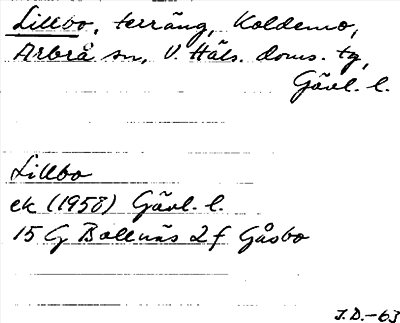 Lillbo, terräng, Koldemo,
Arbrå sn, V. Häls. doms. tg,
Gävl. l.
Lillbo
ek (1958) Gävl. l.
15 G Bollnäs 2 f Gåsbo
J.D.-63